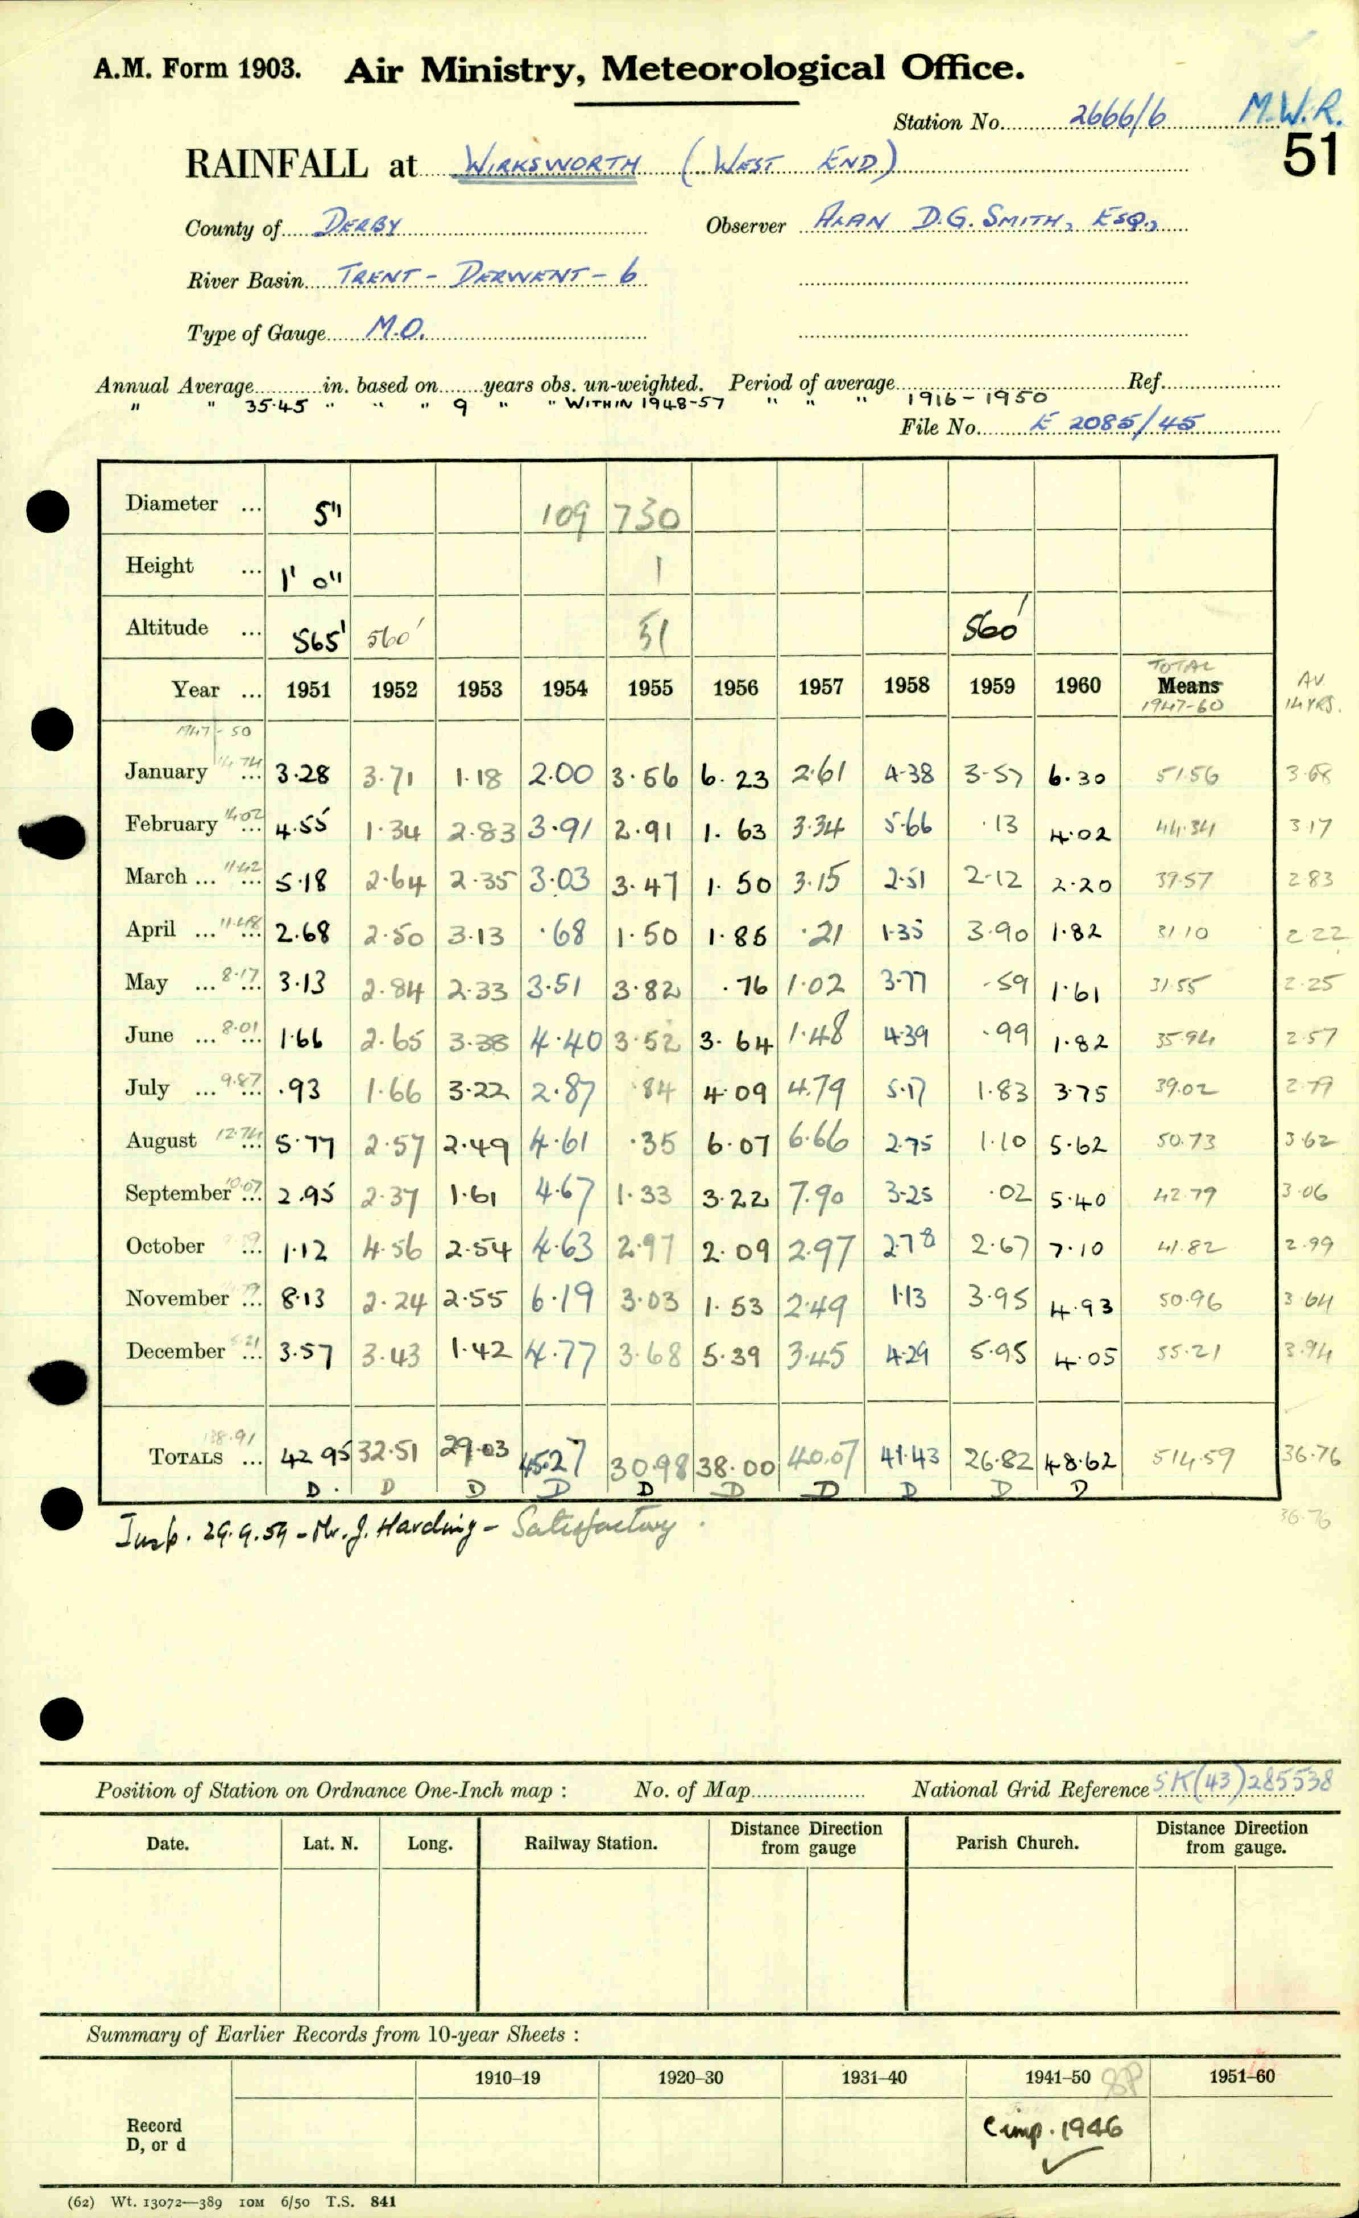 A.M. Form 1903. Air Ministry, Meteorological Office.
Station No. 2666/6 M.W.R.
51
RAINFALL at WIRKSWORTH (WEST END)
County of DERBY Observer ALAN D.G. SMITH, ESQ.,
River Basin TRENT - DERWENT - 6
Type of Gauge M.O.
Annual Average in. based on years obs. un-weighted. Period of average Ref.
" " 35.45 " " " 9 " " WITHIN 1948-57 " " " 1916-1950
File No. E 2085/45
Diameter ... 5" 109 730
Height ... 1' 0" 1
Altitude ... 565' 560' 51 560'
TOTAL
Year ... 1951 1952 1953 1954 1955 1956 1957 1958 1959 1960 Means AV
1947-60 14 YRS.
1947-50
January 14.74 ... 3.28 3.71 1.18 2.00 3.56 6.23 2.61 4.38 3.57 6.30 51.56 3.68
February 14.02 ... 4.55 1.34 2.83 3.91 2.91 1.63 3.34 5.66 .13 4.02 44.34 3.17
March ... 11.42 ... 5.18 2.64 2.35 3.03 3.47 1.50 3.15 2.51 2.12 2.20 39.57 2.83
April ... 11.48 ... 2.68 2.50 3.13 .68 1.50 1.85 .21 1.35 3.90 1.82 31.10 2.22
May ... 8.17 ... 3.13 2.84 2.33 3.51 3.82 .76 1.02 3.77 .59 1.61 31.55 2.25
June ... 8.01 ... 1.66 2.65 3.38 4.40 3.52 3.64 1.48 4.39 .99 1.82 35.94 2.57
July ... 9.87 ... .93 1.66 3.22 2.87 .84 4.09 4.79 5.17 1.83 3.75 39.02 2.79
August 12.74 ... 5.77 2.57 2.49 4.61 .35 6.07 6.66 2.75 1.10 5.62 50.73 3.62
September 10.07 ... 2.95 2.37 1.61 4.67 1.33 3.22 7.90 3.25 .02 5.40 42.79 3.06
October ... 1.12 4.56 2.54 4.63 2.97 2.09 2.97 2.78 2.67 7.10 41.82 2.99
November ... 8.13 2.24 2.55 6.19 3.03 1.53 2.49 1.13 3.95 4.93 50.96 3.64
December ... 3.57 3.43 1.42 4.77 3.68 5.39 3.45 4.29 5.95 4.05 55.21 3.94
138.91
TOTALS ... 42.95 32.51 29.03 45.27 30.98 38.00 40.07 41.43 26.82 48.62 514.59 36.76
D. D D D D D D D D D
36.76
Insp. 29.9.59 - Mr. J. Harding - Satisfactory.
Position of Station on Ordnance One-Inch map : No. of Map National Grid Reference SK(43)285538
Date. Lat. N. Long. Railway Station. Distance Direction from gauge Parish Church. Distance Direction from gauge.
Summary of Earlier Records from 10-year Sheets :
1910–19 1920–30 1931–40 1941–50 SP 1951–60
Record
D, or d
Comp. 1946
(62) Wt. 13072—389 10M 6/50 T.S. 841